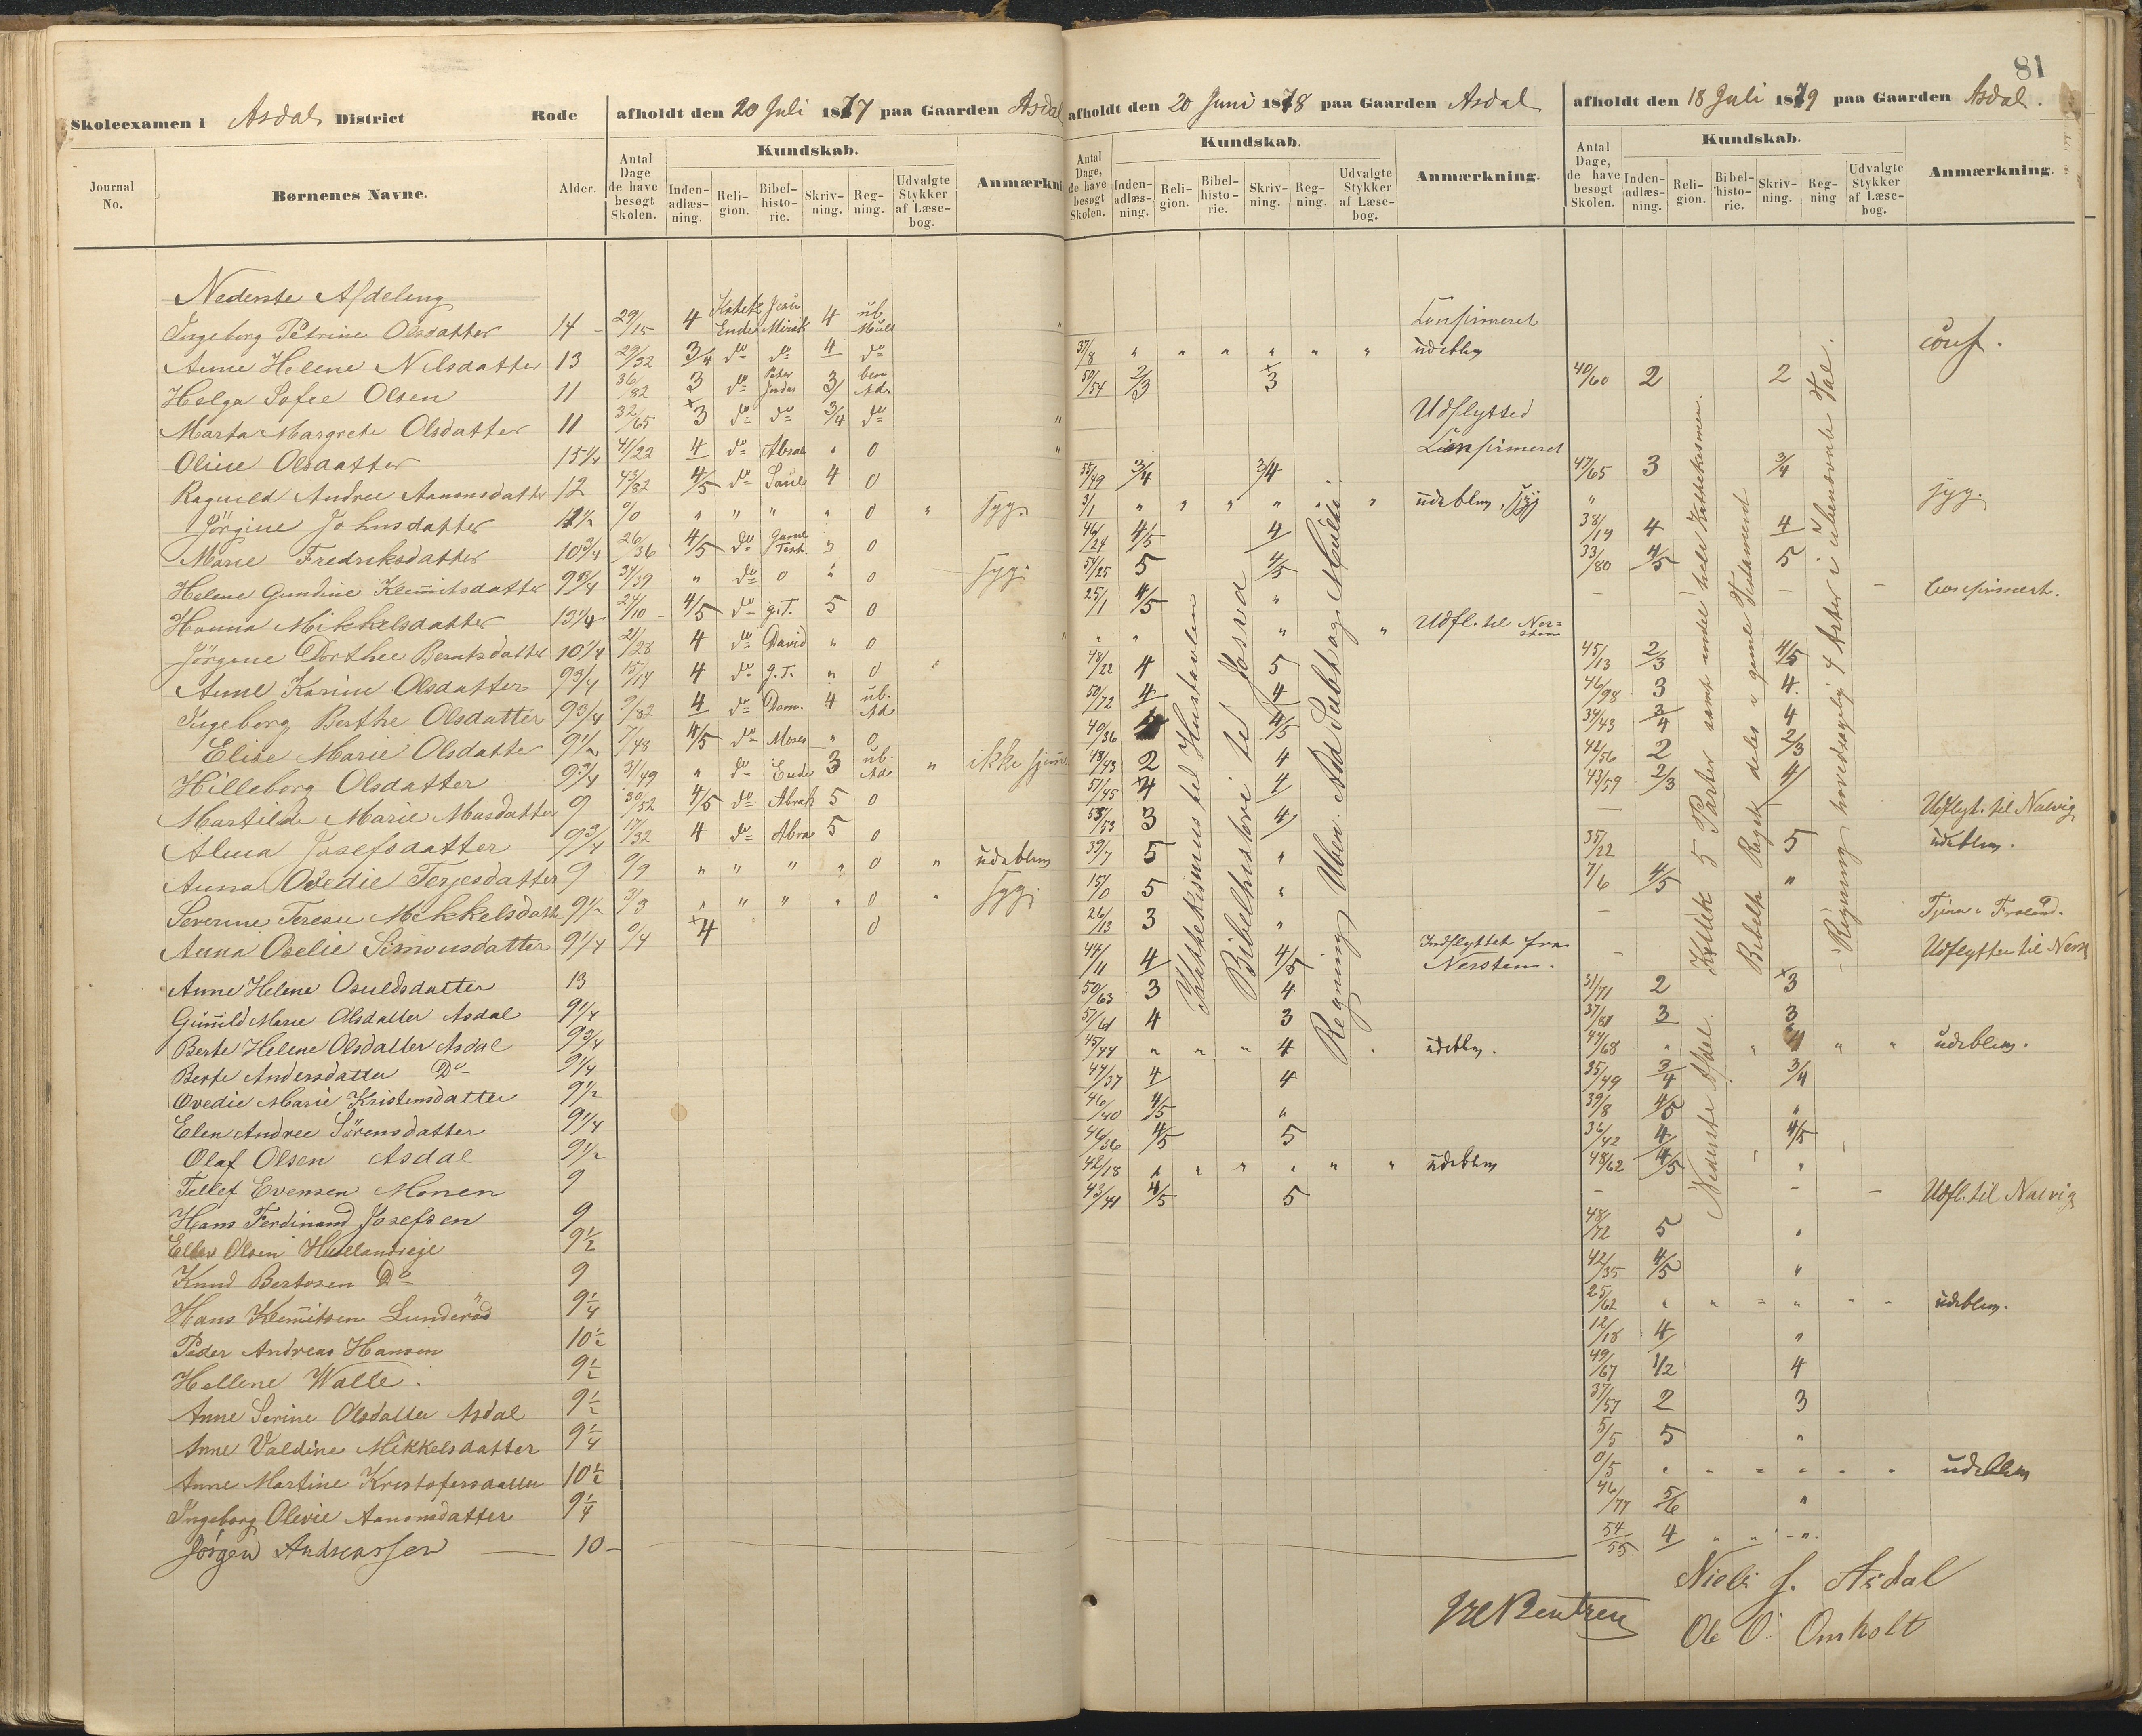 81
Skoleexamen i Asdal District Rode afholdt den 20 Juli 1877 paa Gaarden Asdal afholdt den 20 Juni 1878 paa Gaarden Asdal afholdt den 18 Juli 1879 paa Gaarden Asdal.
Journal No. Børnenes Navne. Alder. Antal Dage de have besøgt Skolen. Kundskab. Inden-adlæs-ning. Reli-gion. Bibel-histo-rie. Skriv-ning. Reg-ning. Udvalgte Stykker af Læse-bog. Anmærkni
Antal Dage, de have besøgt Skolen. Kundskab. Inden-adlæs-ning. Reli-gion. Bibel-histo-rie. Skriv-ning. Reg-ning. Udvalgte Stykker af Læse-bog. Anmærkning.
Antal Dage, de have besøgt Skolen. Kundskab. Inden-adlæs-ning. Reli-gion. Bibel-histo-rie. Skriv-ning. Reg-ning Udvalgte Stykker af Læse-bog. Anmærkning.
Nederste Afdeling
Ingeborg Petrine Olsdatter 14 29/15 4 4 ub. Confirmeret
Anne Helene Nilsdatter 13 29/32 3/4 do do 4 do 37/8 " " " " " " udeblev conf.
Helga Sofee Olsen 11 36/82 3 do 3 50/54 2/3 3 40/60 2 2
Marta Margrete Olsdatter 11 32/65 3 do do 3/4 do Udflytted
Oline Olsdatter 15 1/4 41/22 4 do 0 Confirmeret
Ragnild Andree Aanonsdatter 12 43/82 4/5 do Saul 4 0 55/49 3/4 3/4 47/65 3 3/4
Jörgine Johnsdatter 11 1/2 0/0 " " " " 0 " syg. 3/1 " " " " " " udeblev, syg " syg.
Marie Fredriksdatter 10 3/4 26/36 4/5 do " 0 46/24 4/5 4 38/19 4 4
Helene Gundine Klemitsdatter 9 3/4 34/39 " do 0 " 0 syg. 54/25 5 4/5 33/80 4/5 5
Hanna Mikkelsdatter 13 1/4 24/10 4/5 do g.T. 5 0 25/1 4/5 " Confirmert.
Jörgine Dorthee Berntsdatter 10 1/4 21/28 4 do David " 0 " " " " Udfl. til Ner=sten
Anne Karine Olsdatter 9 3/4 15/14 4 do g.T. " 0 48/22 4 5 45/13 2/3 4/5
Ingeborg Berthe Olsdatter 9 3/4 9/82 4 do Dom. 4 ub. Ad 50/72 4 4 46/98 3 4
Elise Marie Olsdatter 9 1/2 7/48 4/5 do Moses " 0 40/36 4/5 34/43 3/4 4
Hilleborg Olsdatter 9 3/4 31/49 " do Ende 3 ub. Ad " ikke hjemme 48/43 2 4 42/56 2 2/3
Martilde Marie Masdatter 9 30/52 4/5 do Abrah 5 0 51/45 4 4 43/59 2/3 4
Alma Josefsdatter 9 3/4 17/32 4 do Abra 5 0 53/53 3 4 Udflyt. til Narvig
Anna Ovedie Terjesdatter 9 9/9 " " " " 0 " udeblev 39/7 5 " 35/22 5 udeblev.
Severine Terese Mikkelsdatter 9 1/2 3/3 " " " " 0 " syg. 15/0 5 " 7/6 4/5 "
Anna Oselie Simonsdatter 9 1/4 0/4 4 0 26/13 3 " Tjener i Froland.
Anne Helene Osuldsdatter 13 44/11 4 4/5 Indflyttet fra Nersten. Udflyttet til Ners
Gunnild Marie Olsdatter Asdal 9 1/4 50/63 3 4 31/71 2 3
Berte Helene Olsdatter Asdal 9 3/4 51/61 4 3 37/81 3 3
Berte Andersdatter Do 9 1/4 45/44 " " " 4 " udeblev. 44/68 " " 4 " " udeblev.
Ovedie Marie Kristensdatter 9 1/2 44/37 4 4 35/49 3/4 3/4
Elen Andree Sörensdatter 9 1/4 46/40 4/5 " 39/8 4/5 "
Olaf Olsen Asdal 9 1/2 46/36 4/5 5 36/42 4 4/5
Tellef Evensen Monen 9 42/18 " " " " " " udeblev 48/62 4/5 "
Hans Ferdinand Josefsen 9 43/41 4/5 5 Udfl. til Narvig
Ellev Olsen Husllandseje 9 1/2 48/72 5 "
Knud Bertosen Do 9 42/35 4/5 "
Hans Klemitsen Lunderød 9 1/4 25/62 " " " " " " udeblev.
Peder Andreas Hansen 10 1/2 12/18 4 "
Hellene Walle. 9 1/2 49/67 1/2 4
Anne Serine Olsdatter Asdal 9 1/2 37/57 2 3
Anne Valdine Mikkelsdatter 9 1/4 5/5 5 "
Anne Martine Kristofersdatter 10 1/2 0/5 " " " " " " udeblev
Ingeborg Olevie Aanonsdatter 9 1/4 46/77 5/6 "
Jörgen Andreassen 10 54/55 4 " " " "
Kathekismus til Hustavlen
Bibelhistorie til Josva
Regning Uben. Add Subt og Multi.
Nederste Afdel. Kattek 5 Parter samt indel hele Kattekismen.
Bibelh Rygtk deles u gamle Testament
Regning hovedsagelig 4 Arter i ubenævnte Tal.
Niels J. Asdal
Ole O. Omholt